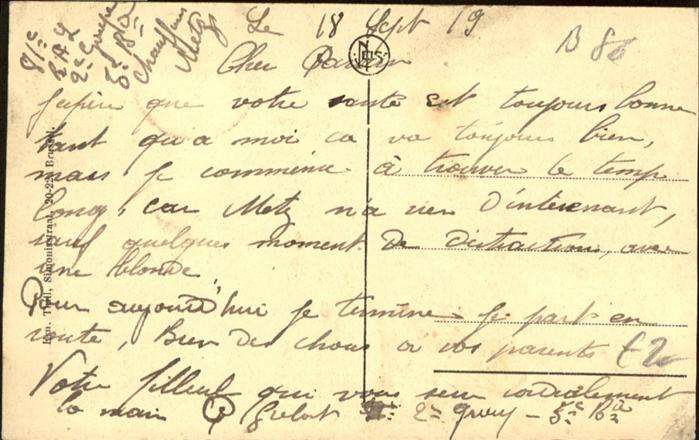 Le 18 Sept 19
81e
R A L
2e groupe
5e Bie
Metz
B 80
NELS
Cher Parrain
J'espère que votre sante est toujours bonne
tant qu'a moi ca va toujours bien,
mais je commence à trouver le temps
long, car Metz n'a rien d'interenant,
sauf quelques moment de distraction, avec
une blonde.
Pour aujourd'hui je termine je part en
route, Bien des choses a vos parents
£2
Votre filleul qui vous serre cordialement
la main
2e group - 5e Bie
Imp. Thill, 20-22, Brussel.